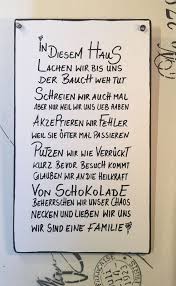 In diesem Haus
lachen wir bis uns
der Bauch weh tut
Schreien wir auch mal
aber nur weil wir uns lieb haben
Akzeptieren wir Fehler
weil sie öfter mal passieren
Putzen wir wie verrückt
kurz bevor Besuch kommt
Glauben wir an die Heilkraft
von Schokolade
Beherrschen wir unser Chaos
Necken und lieben wir uns
wir sind eine Familie